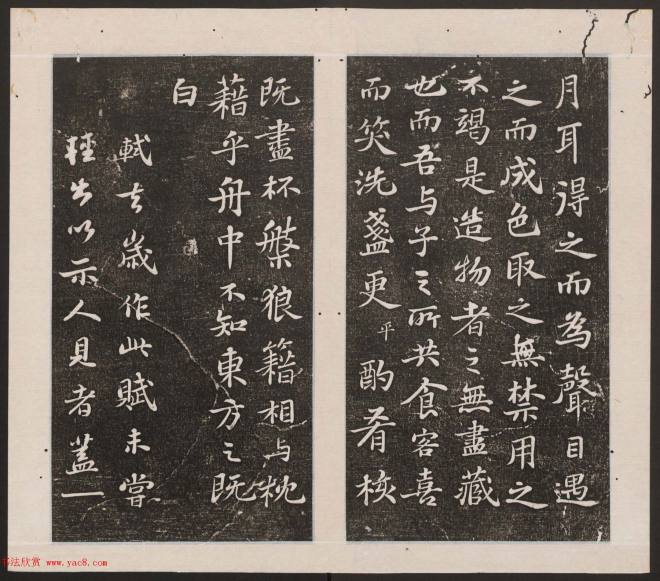 月耳得之而為聲目遇
之而成色取之無禁用之
不竭是造物者之無盡藏
也而吾与子之所共食客喜
而笑洗盞更平酌肴核
既盡杯槃狼籍相与枕
藉乎舟中不知東方之既
白
軾去歲作此賦未嘗
輕出以示人見者盖一
书法欣赏 www.yac8.com